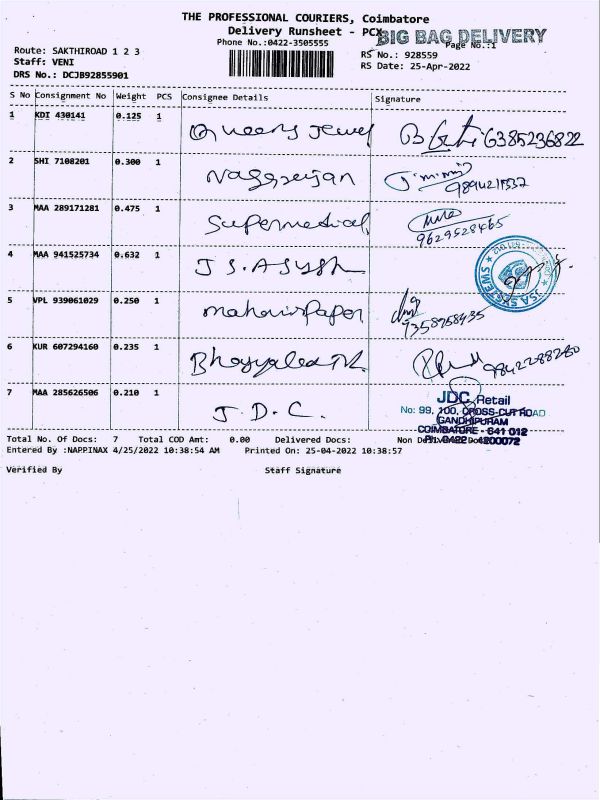 THE PROFESSIONAL COURIERS, Coimbatore
Delivery Runsheet - PCX
BIG BAG DELIVERY
Phone No.:0422-3505555
Page No.:1
Route: SAKTHIROAD 1 2 3
RS No.: 928559
Staff: VENI
RS Date: 25-Apr-2022
DRS No.: DCJB92855901
S No Consignment No Weight PCS Consignee Details Signature
1 KDI 430141 0.125 1 Queens Jewel 6385236822
2 SHI 7108201 0.300 1 Nagarajan
3 MAA 289171281 0.475 1 Supermedical 9629528465
4 MAA 941525734 0.632 1 J S. JSA SYSTEMS
5 VPL 939061029 0.250 1 mahavirpaper 7358758435
6 KUR 607294160 0.235 1 9842288280
7 MAA 285626506 0.210 1 J. D. C.
JDC Retail
No: 99, 100, CROSS-CUT ROAD
GANDHIPURAM
COIMBATORE - 641 012
PH: 0422 - 4200072
Total No. Of Docs: 7 Total COD Amt: 0.00 Delivered Docs: Non Delivered Docs
Entered By :NAPPINAX 4/25/2022 10:38:54 AM Printed On: 25-04-2022 10:38:57
Verified By Staff Signature